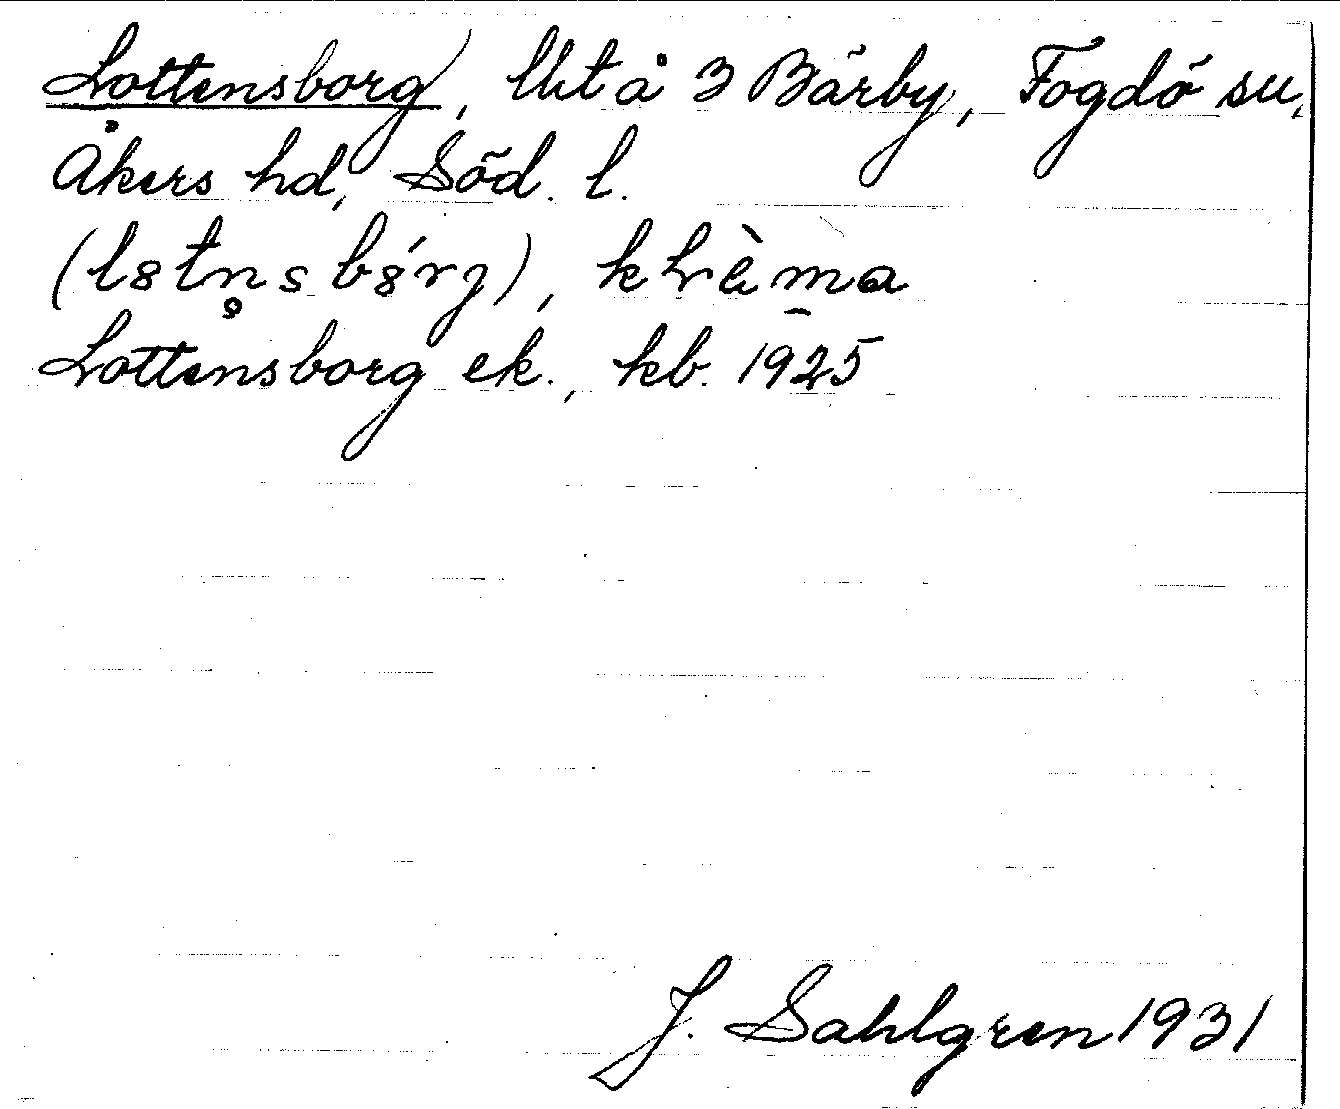 Lottensborg, lht å 3 Bärby, Fogdö sn,
Åkers hd, Söd. l.
(l8tn̥sb8́rj),
Lottensborg ek., kb. 1925
J. Sahlgren 1931